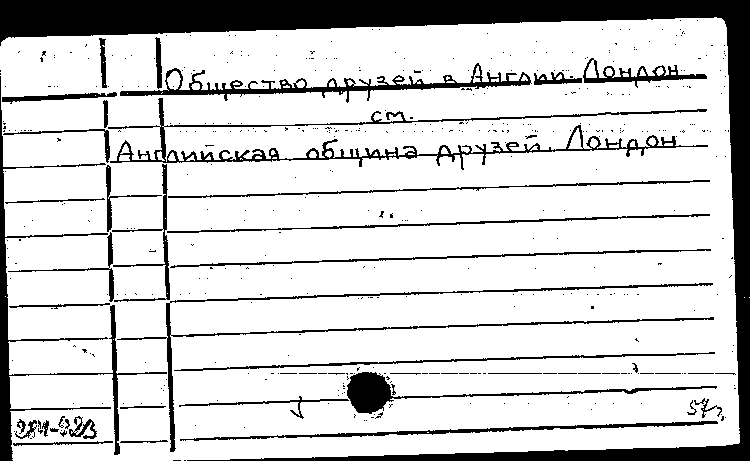 Общество друзей в Англии. Лондон
см.
Английская община друзей. Лондон